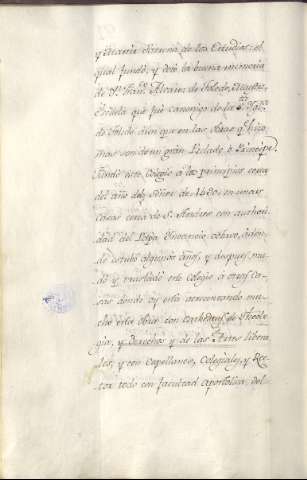 y Alcázar
de los Estudios: el
qual fundó, y dotó la buena memoria
de D. Fran.co Alvarez de Toledo, Maestre
Escuela que fue canonigo de la S.ta Yglª.
de Toledo aun que en las obras q.e hizo
mas son de un gran Perlado, ó Principe.
Fundó este Colegio a los principios cerca
del año del Señor de 1490. en unas
casas cerca de S. Andres con authori-
dad del Papa Innocencio octavo, adon-
de estubo algunos años, y despues mu-
dó y trasladó este Colegio á otras ca-
sas donde oy está acrecentando mu-
cho esta obra con Cathedras de Theolo-
gia, y Derechos y de las Artes libera-
les, y con Capellanes, Colegiales, y Rec-
tor todo con facultad apostolica, del